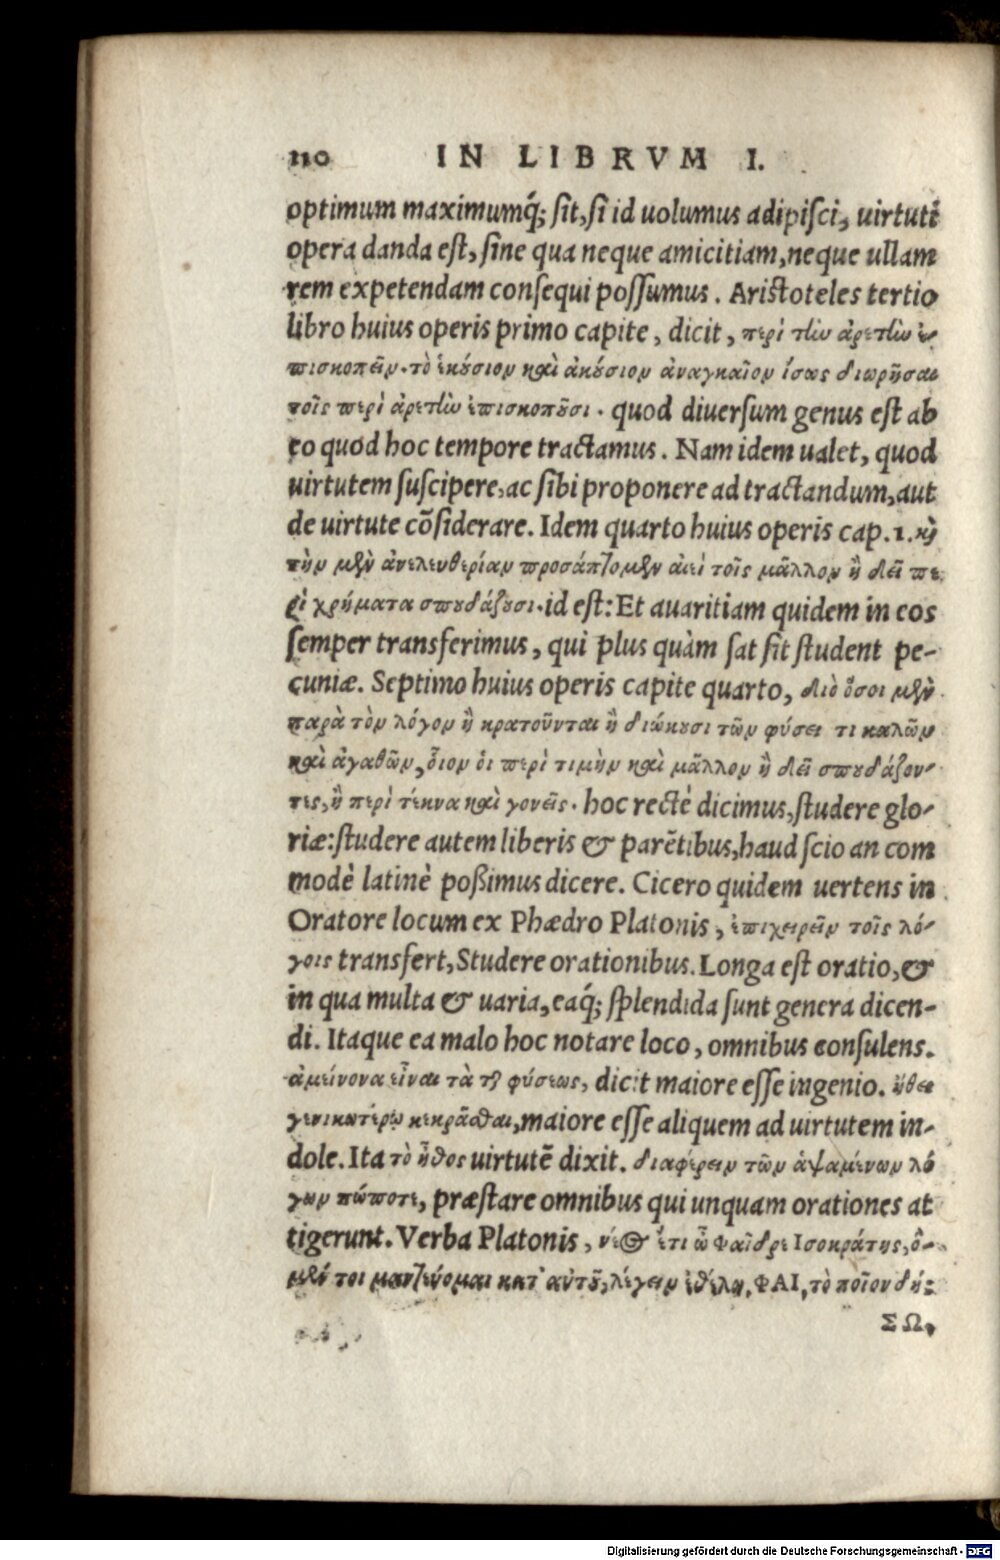 110 IN LIBRVM I.
optimum maximumq́; sit, si id uolumus adipisci, uirtutĩ
opera danda est, sine qua neque amicitiam, neque ullam
rem expetendam consequi possumus. Aristoteles tertio
libro huius operis primo capite, dicit, περὶ τὴν ἀρετὴν ἐ-
πισκοπεῖν. τὸ ἑκούσιον καὶ ἀκούσιον ἀναγκαῖον ἴσως διωρῆσαι
τοῖς περὶ ἀρετὴν ἐπισκοποῦσι. quod diuersum genus est ab
eo quod hoc tempore tractamus. Nam idem ualet, quod
uirtutem suscipere, ac sibi proponere ad tractandum, aut
de uirtute cõsiderare. Idem quarto huius operis cap. 1. καὶ
τὴν μὲν ἀνελευθερίαν προσάπτομεν ἀεὶ τοῖς μᾶλλον ἢ δεῖ πε-
ρὶ χρήματα σπουδάζουσι. id est: Et auaritiam quidem in eos
semper transferimus, qui plus quàm sat sit student pe-
cuniæ. Septimo huius operis capite quarto, διὸ ὅσοι μὲν
παρὰ τὸν λόγον ἢ κρατοῦνται ἢ διώκουσι τῶν φύσει τι καλῶν
καὶ ἀγαθῶν, οἷον οἱ περὶ τιμὴν καὶ μᾶλλον ἢ δεῖ σπουδάζον-
τες, ἢ περὶ τέκνα καὶ γονεῖς. hoc rectè dicimus, studere glo-
riæ: studere autem liberis & parẽtibus, haud scio an com
modè latinè poßimus dicere. Cicero quidem uertens in
Oratore locum ex Phædro Platonis, ἐπιχειρεῖν τοῖς λό-
γοις transfert, Studere orationibus. Longa est oratio, &
in qua multa & uaria, eaq́; splendida sunt genera dicen-
di. Itaque ea malo hoc notare loco, omnibus consulens.
ἀμείνονα εἶναι τὰ τῆς φύσεως, dicit maiore esse ingenio. ἤθει
γενικωτέρῳ κεκρᾶσθαι, maiore esse aliquem ad uirtutem in-
dole. Ita τὸ ἦθος uirtutẽ dixit. διαφέρειν τῶν ἁψαμένων λό
γων πώποτε, præstare omnibus qui unquam orationes at
tigerunt. Verba Platonis, νέος ἔτι ὦ Φαῖδρε Ισοκράτης, ὃ-
μέν τοι μαντεύομαι κατ' αὐτοῦ, λέγειν ἐθέλω. ΦΑΙ, τὸ ποῖον δή;
ΣΩ,
Digitalisierung gefördert durch die Deutsche Forschungsgemeinschaft - DFG